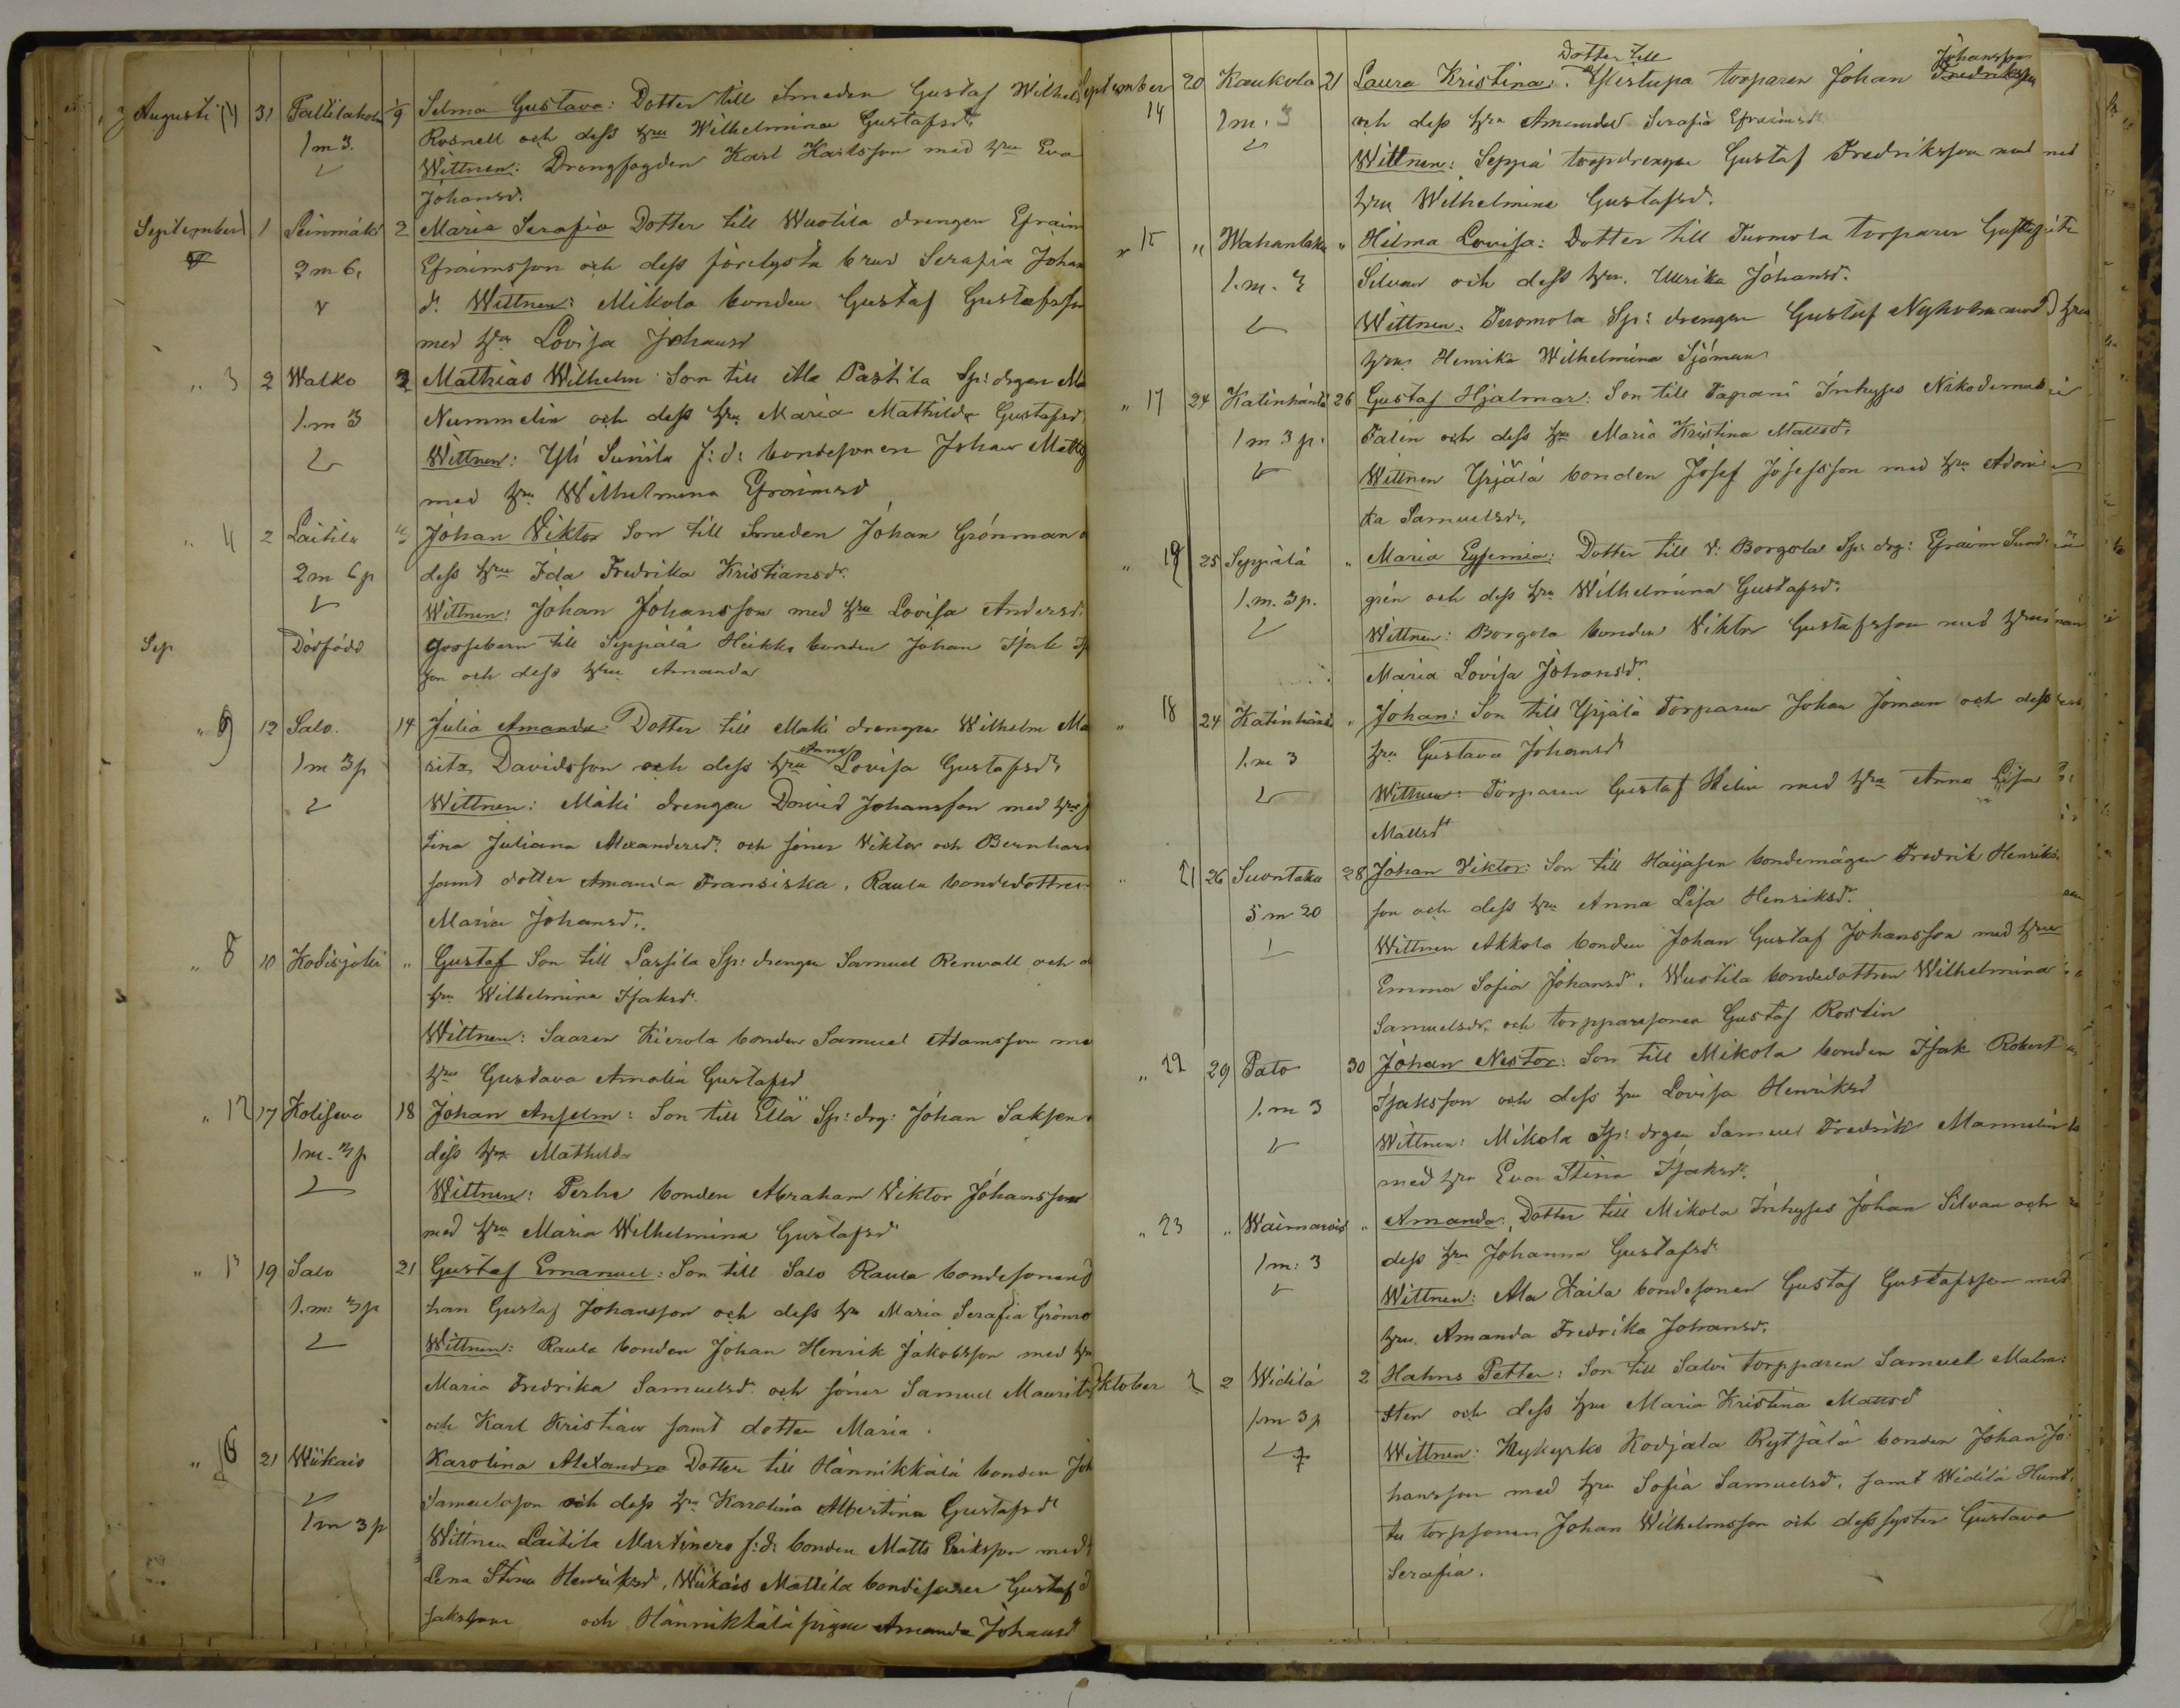 Augusti 31 Tattilakoto 1/9 Selma Gustava: Dotter till Smeden Gustaf Wilhelm
1 m 3. Rosnell och dess hru Wilhelmina Gustafsdr
Wittnen: Drengfogden Karl Karlsson med hru Eva
Johansdr.
September 1 Seinmäki 2 Maria Serafia Dotter till Wuotila drengen Efraim
2 m 6. Efraimsson och dess förelysta brud Serafia Johan
dr. Wittnen: Mikola bonden Gustaf Gustafsson
med hru Lovisa Johansd
" 3 2 Walko 2 Mathias Wilhelm Son till Ala Pastila Sp: drgen
1. m 3 Nummelin och dess hru Maria Mathilda Gustafsd.
Wittnen: Yli Sunila f: d: bondesonen Johan Matts
med hru Wilhelmina Efraimsd
" 4 2 Laitila " Johan Viktor Son till Smeden Johan Grönman
2 m 6 p dess hru Ida Fredrika Kristiansdr.
Wittnen: Johan Johansson med hru Lovisa Andersd.
Sep Dödfödd Gossebarn till Seppälä Heikki bonden Johan Isak
son och dess hru Amanda
" 9 12 Salo. 14 Julia Amanda Dotter till Maki drengen Wilhelm Ma
Anna
1 m 3 p ritz Davidsson och dess hru Lovisa Gustafsdr.
Wittnen: Mäki drengen David Johansson med hru
tina Juliana Alexandersdr. och söner Viktor och Bernhard
samt dotter Amanda Fransiska, Raula bondedottren
Maria Johansdr.
" 8 10 Kodisjoki " Gustaf Son till Sassila Sp: drengen Samuel Renvall och
hru Wilhelmina Isaksd.
Wittnen: Saaren Kierola bonden Samuel Adamsson me
hru Gustava Amalia Gustafsd
" 12 17 Kolisewa 18 Johan Anselm: Son till Ellä Sp: drg: Johan Saksen
1 m. 3 p dess hru Mathilda
Wittnen: Perho bonden Abraham Viktor Johansson
med hru Maria Wilhelmina Gustafsd
" 13 19 Salo 21 Gustaf Emanuel: Son till Salo Raula bondesonen
1. m: 3 p han Gustaf Johansson och dess hru Maria Serafia Grönro
Wittnen: Raula bonden Johan Henrik Jakobsson med hru
Maria Fredrika Samuelsd. och söner Samuel Maurits
och Karl Kristian samt dotter Maria.
" 16 21 Wiikais Karolina Alexandra Dotter till Hännikkälä bonden Joh
Samuelsson och dess hru Karolina Albertina Gustafsd
1 m 3 p Wittnen Laitila Martinero f: d: bonden Matts Eriksson med
Lena Stina Henriksd, Wiikais Mattila bondesonen Gustaf
saksson och Hännikkälä pigan Amanda Johansd
Dotter till Johansson
September 20 Kaukola 21 Laura Kristina. Ylistupa torparen Johan Fredriksson
14 1 m. 3 och dess hru Amanda Serafia Efraimsd
Wittnen: Seppä torpdrengen Gustaf Fredriksson med
hru Wilhelmina Gustafsd.
" 15 " Wahantaka " Hilma Lovisa: Dotter till Tuomola torparen Gustaf
1. m. 3 Silvan och dess hru. Ulrika Johansd.
Wittnen. Tuomola Sp: drengen Gustaf Nyholm med
hru Henrika Wilhelmina Sjöman
" 17 24 Katinhäntä 26 Gustaf Hjalmar: Son till Tapani Inhyses Nikodemus
1 m 3 p. Talin och dess hru Maria Kristina Mattsd.
Wittnen Yrjälä bonden Josef Josefsson med hru Adami
ka Samuelsdr.
" 19 25 Seppälä " Maria Eufemia: Dotter till V: Borgola Sp: drg: Efraim Sund
1. m. 3 p. gren och dess hru Wilhelmina Gustafsd.
Wittnen: Borgola bonden Viktor Gustafsson med hru
Maria Lovisa Johansdr.
" 18 24 Katinhäntä " Johan: Son till Yrjälä Torparen Johan Joman och dess
1. m 3 hru Gustava Johansd
Wittnen: Torparen Gustaf Helin med hru Anna Lisa
Mattsd
" 21 26 Suontaka 28 Johan Viktor: Son till Haijasen bondemågen Fredrik Henriks
5 m 20 son och dess hru Anna Lisa Henriksdr.
Wittnen Akkola bonden Johan Gustaf Johansson med hru
Emma Sofia Johansd. Wuotila bondedottren Wilhelmina
Samuelsdr, och torpparesonen Gustaf Rostin
" 22 29 Pato 30 Johan Nestor: Son till Mikola bonden Isak Robert
1. m 3 Isaksson och dess hru Lovisa Henriksd
Wittnen: Mikola Sp: drgen Samuel Fredrik Mannelin
med hru Eva Stina Isaksdr.
" 23 " Waimarois " Amanda: Dotter till Mikola Inhyses Johan Silvan och
1 m: 3 dess hru Johanna Gustafsdr
Wittnen: Ala Kaila bondesonen Gustaf Gustafsson med
hru. Amanda Fredrika Johansd.
Oktober 2 2 Widilä 2 Hahns Petter: Son till Salvi torpparen Samuel Malm:
1. m 3 p sten och dess hru Maria Kristina Mattsd
Wittnen: Nykyrko Kodjala Rytsälä bonden Johan Jo:
hansson med hru Sofia Samuelsd. samt Widilä Hunt.
tu torpsonen Johan Wilhelmsson och dess syster Gustava
Serafia.